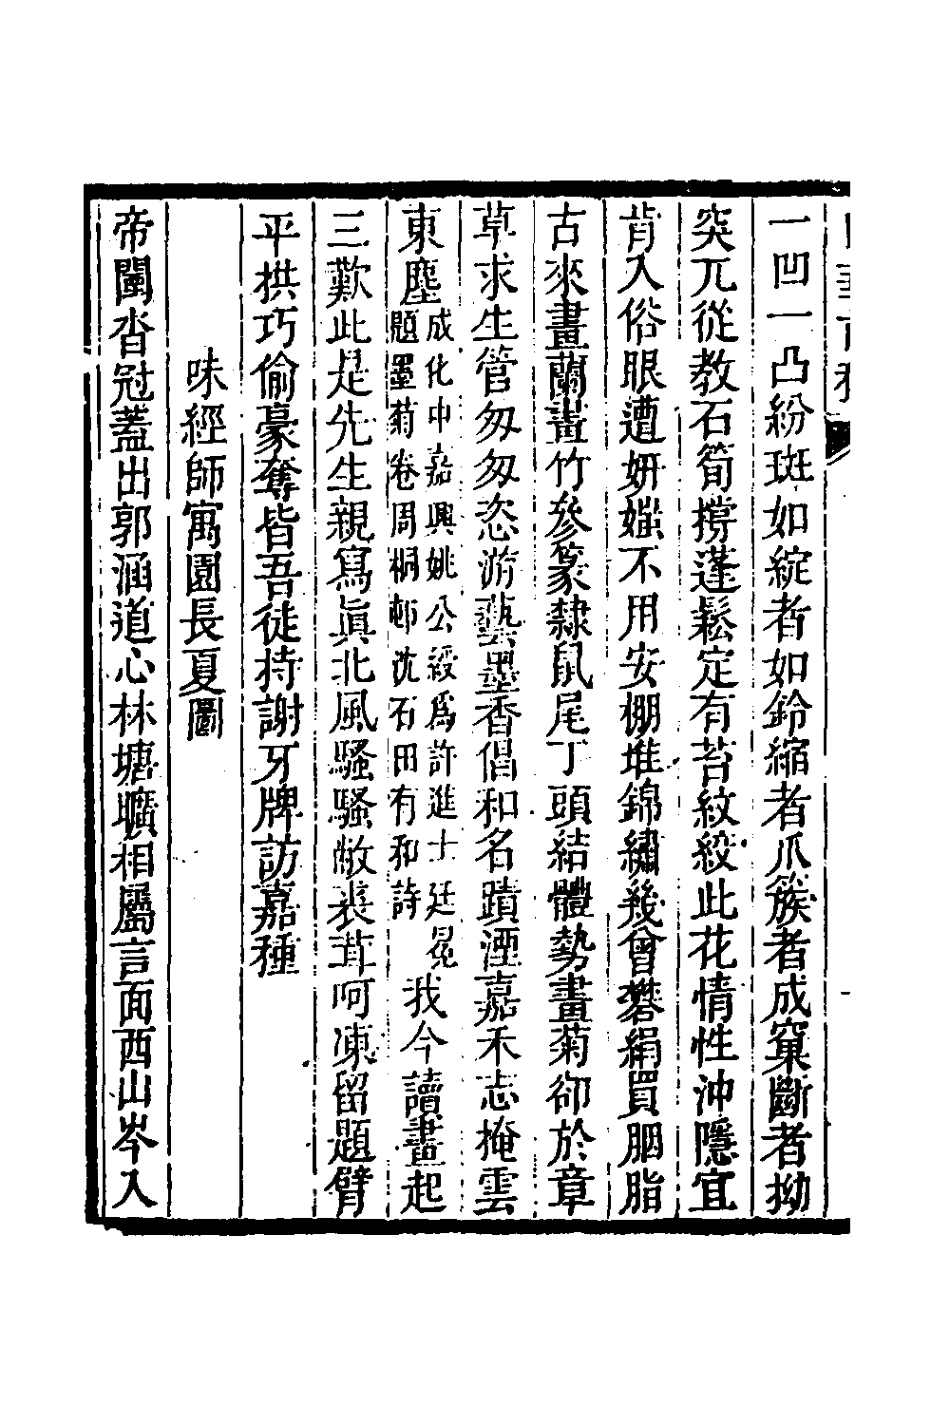 一凹一凸紛斑如綻者如鈴縮者爪簇者成窠斷者拗
突兀從教石筍撐蓬鬆定有苔紋絞此花情性沖隱宜
肯入俗眼遭妍媸不用安棚堆錦繡幾曾礬絹買胭脂
古來畫蘭畫竹參篆隸鼠尾丁頭結體勢畫菊卻於章
草求生管匆匆恣游藝墨香倡和名蹟湮嘉禾志掩雲
東塵
成化中嘉興姚公綬爲許進士廷冕
題墨菊卷周桐邨沈石田有和詩
我今讀畫起
三歎此是先生親寫眞北風騷騷敝裘茸呵凍留題臂
平拱巧偷豪奪皆吾徒持謝牙牌訪嘉種
味經師寓園長夏圖
帝闉沓冠蓋出郭涵道心林塘曠相屬言面西山岑入